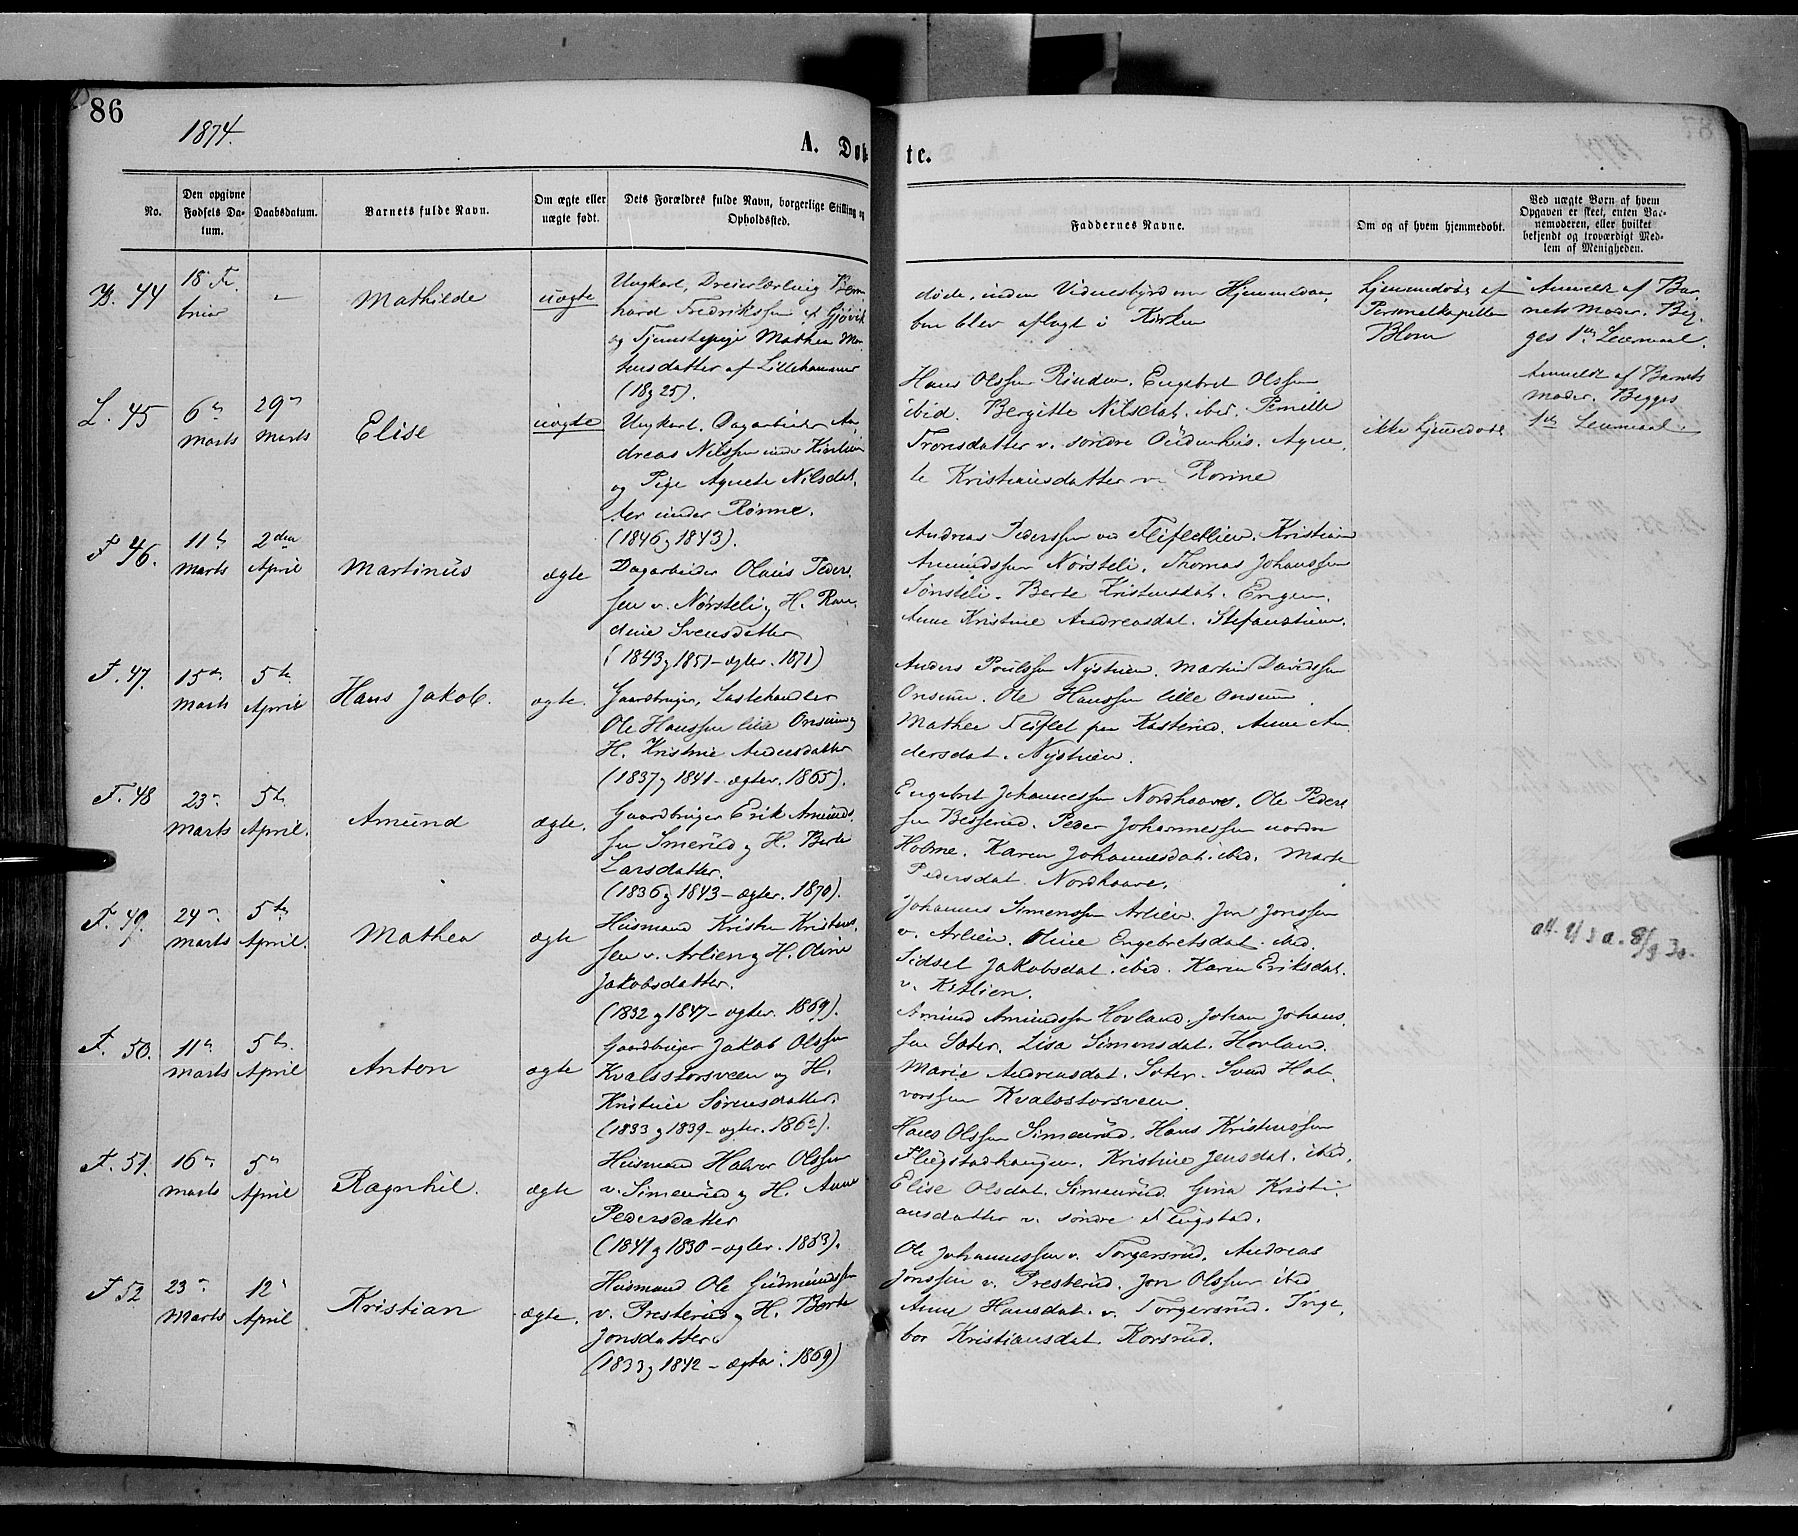 86
1874.
A. Døbte.
No.
Den opgivne Fødsels Datum.
Daabsdatum.
Barnets fulde Navn.
Om ægte eller uægte født.
Dets Forældres fulde Navn, borgerlige Stilling og Opholdssted.
Faddernes Navne.
Om og af hvem hjemmedøbt.
Ved uægte Born af hvem Opgaven er skeet, enten Barnemoderen, eller hvilket bekjendt og troværdigt Medlem af Menigheden.
B. 44
18 Fe
bruar
Mathilde
uægte
Ungkarl, Dreierlærling Bern
hard Fredrikssen af Gjøvik
og Tjenestepige Mathea Mor
tensdatter af Lillehammer
(18 & 25).
døde, inden Vidnesbyrd om Hjemmedaa
ben blev aflagt i Kirken
hjemmedøbt af
Personelkapellan
Blom
Anmeldt af Bar
nets Moder. Beg
ges 1ste Leiermaal.
L. 45
6te
Marts
29de
Marts
Elise
uægte
Ungkarl, Dagarbeider An
dreas Nilssen under
og Pige Agnete Nilsdat
ter under Rønne.
(1846 & 1843).
Hans Olssen Rinden. Engebret Olssen
ibid. Bergitte Nilsdat. ibid. Pernille
Tronsdatter v. søndre Oudenhus. Agne
te Kristiansdatter v. Rønne
ikke hjemmedøbt
Anmeldt af Barnets
Moder. Begges
1ste Leiermaal.
F. 46.
11te
Marts
2den
April
Martinus
ægte
Dagarbeider Olaus Peders
sen v. Nørsteli & H. Ran
dine Svensdatter
(1843 & 1851 - ægter. 1871)
Andreas Pederssen v. Flifletlien. Kristian
Amundssen Nørsteli. Thomas Johanssen
Sønsteli. Berte Kristensdat. Engen.
Anne Kristine Andreasdat. Stefanstuen.
F. 47.
15de
Marts
5te
April
Hans Jakob.
ægte.
Gaardbruger, Lastehandler
Ole Hanssen lille Onsum &
H. Kristine Andersdatter
(1837 & 1841 - ægter. 1865).
Anders Poulssen Nystuen. Martin Davidssen
Onsum. Ole Hanssen lille Onsum.
Mathea Fliflet paa Kasterud. Anne An
dersdat. Nystuen.
F. 48
23de
Marts
5te
April.
Amund
ægte.
Gaardbruger Erik Amunds
sen Smerud & H. Berte
Larsdatter.
(1836 & 1843 - ægter. 1870).
Engebret Johannessen Nordhaave. Ole Peders
sen Besserud. Peder Johannessen nordre
Holme. Karen Johannesdat. ibid. Marte
Pedersdat. Nordhaave.
F. 49.
24de
Marts
5te
April.
Mathea
ægte
Husmand Kristen Kristens
sen v. Arlien & H. Oline
Jakobsdatter.
(1832 & 1847 - ægter. 1869).
Johannes Simenssen Arlien. Jon Jonssen
v. Arlien. Oline Engebretsdat. ibid.
Sidsel Jakobsdat. ibid. Karen Eriksdat.
v. Kitlien.
F. 50.
11te
Marts
5te
April
Anton
ægte
Gaardbruger Jakob Olssen
Kvalsstorsveen og H.
Kristine Sørensdatter.
(1833 & 1839 - ægter. 1862).
Amund Amundssen Hovland. Johan Johans
sen Sater. Lisa Simensdat. Hovland.
Marie Andreasdat. Sater. Svend Hal
vorssen Kvalsstorsveen
F. 51.
16de
Marts
5te
April
Ragnhil.
ægte
Husmand Halvor Olssen
v. Simenrud & H. Anne
Pedersdatter
(1841 & 1830 - ægter. 1863).
Hans Olssen Simenrud. Hans Kristenssen
Flugstadhaugen. Kristine Jensdat. ibid.
Elise Olsdat. Simenrud. Gina Kristi
ansdatter v. søndre Flugstad.
F. 52
23de
Marts
12te
April
Kristian
ægte.
Husmand Ole Gudmundssen
v. Presterud & H. Berte
Jonsdatter
(1833 & 1842 - ægter. 1869)
Ole Johannessen v. Torgersrud. Andreas
Jonssen v. Presterud. Jon Olssen ibid
Anne Hansdat. v. Torgersrud. Inge
bor Kristiansdat. Korsrud.